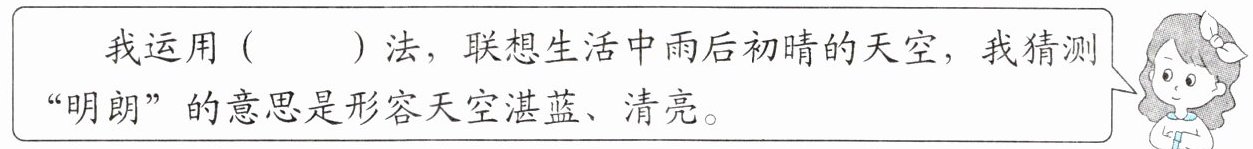 我运用（　　）法，联想生活中雨后初晴的天空，我猜测
“明朗”的意思是形容天空湛蓝、清亮。